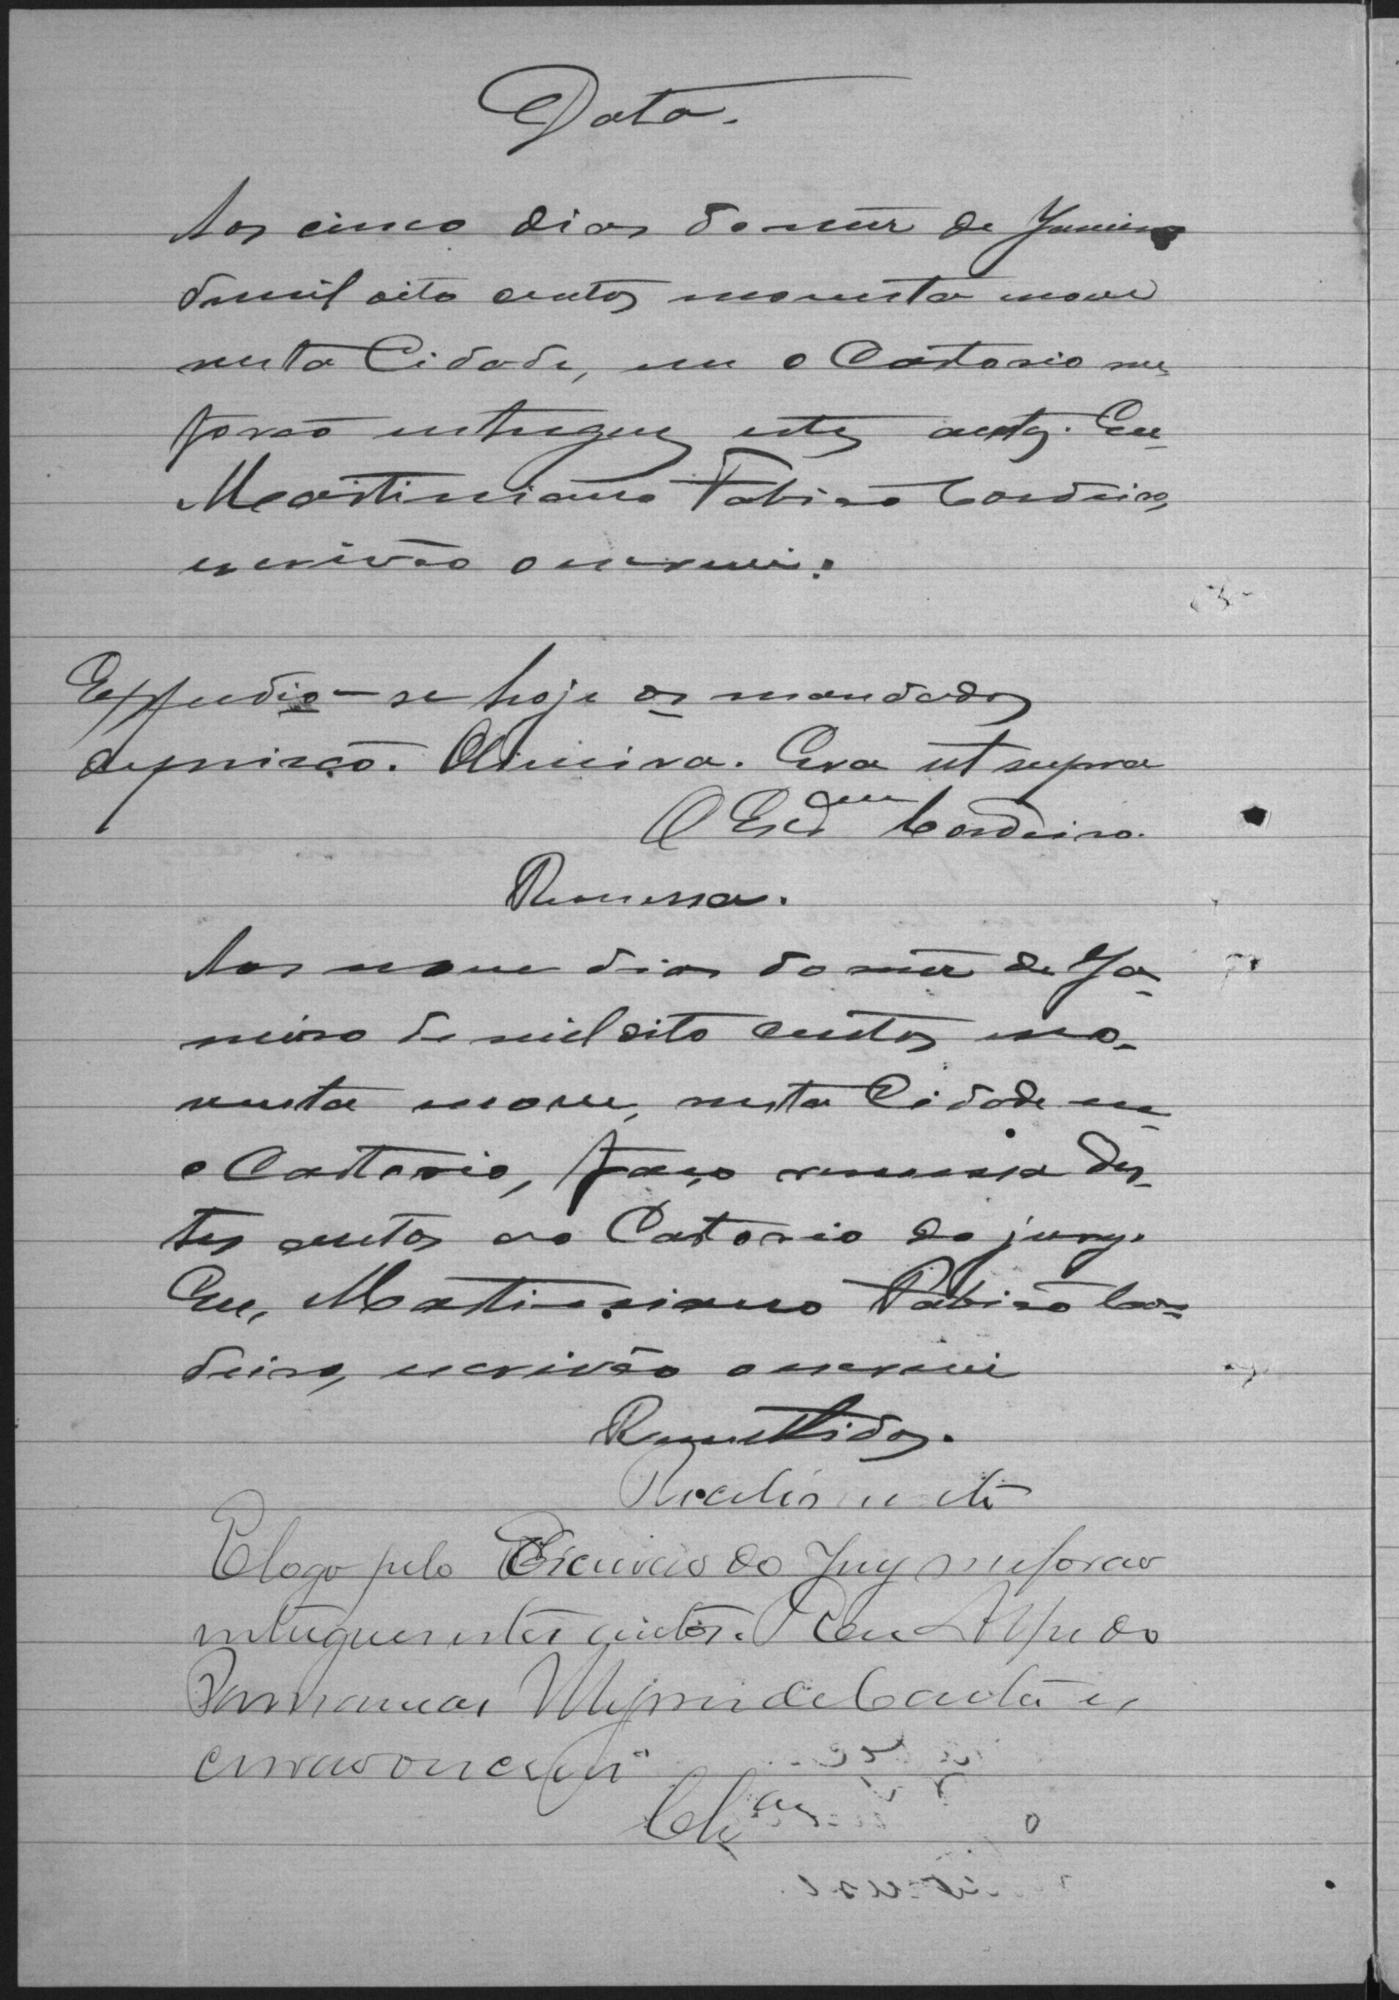 Data.
Aos cinco dias do mez de Janeiro
de mil oito centos noventa nove
nesta Cidade, em o Cartorio me
forão entregues estes autos. Eu
Martiniano Fabião Cordeiro,
escrivão o escrevi.
Expedio-se hoje os mandados
de prisão. Era ut supra
O Escr.am Cordeiro.
Remessa.
Aos nove dias do mez de Ja-
neiro de mil oito centos no-
venta nove, nesta Cidade em
o Cartorio, faço remessa des-
tes autos ao Cartorio do jury.
Eu, Martiniano Fabião Cor-
deiro, escrivão o escrevi
Remettidos.
Recebimento
E logo pelo Escrivão do Jury me forão
entregues estes autos. Eu Alfredo
de Couto es
crivão o escrevi
Clz